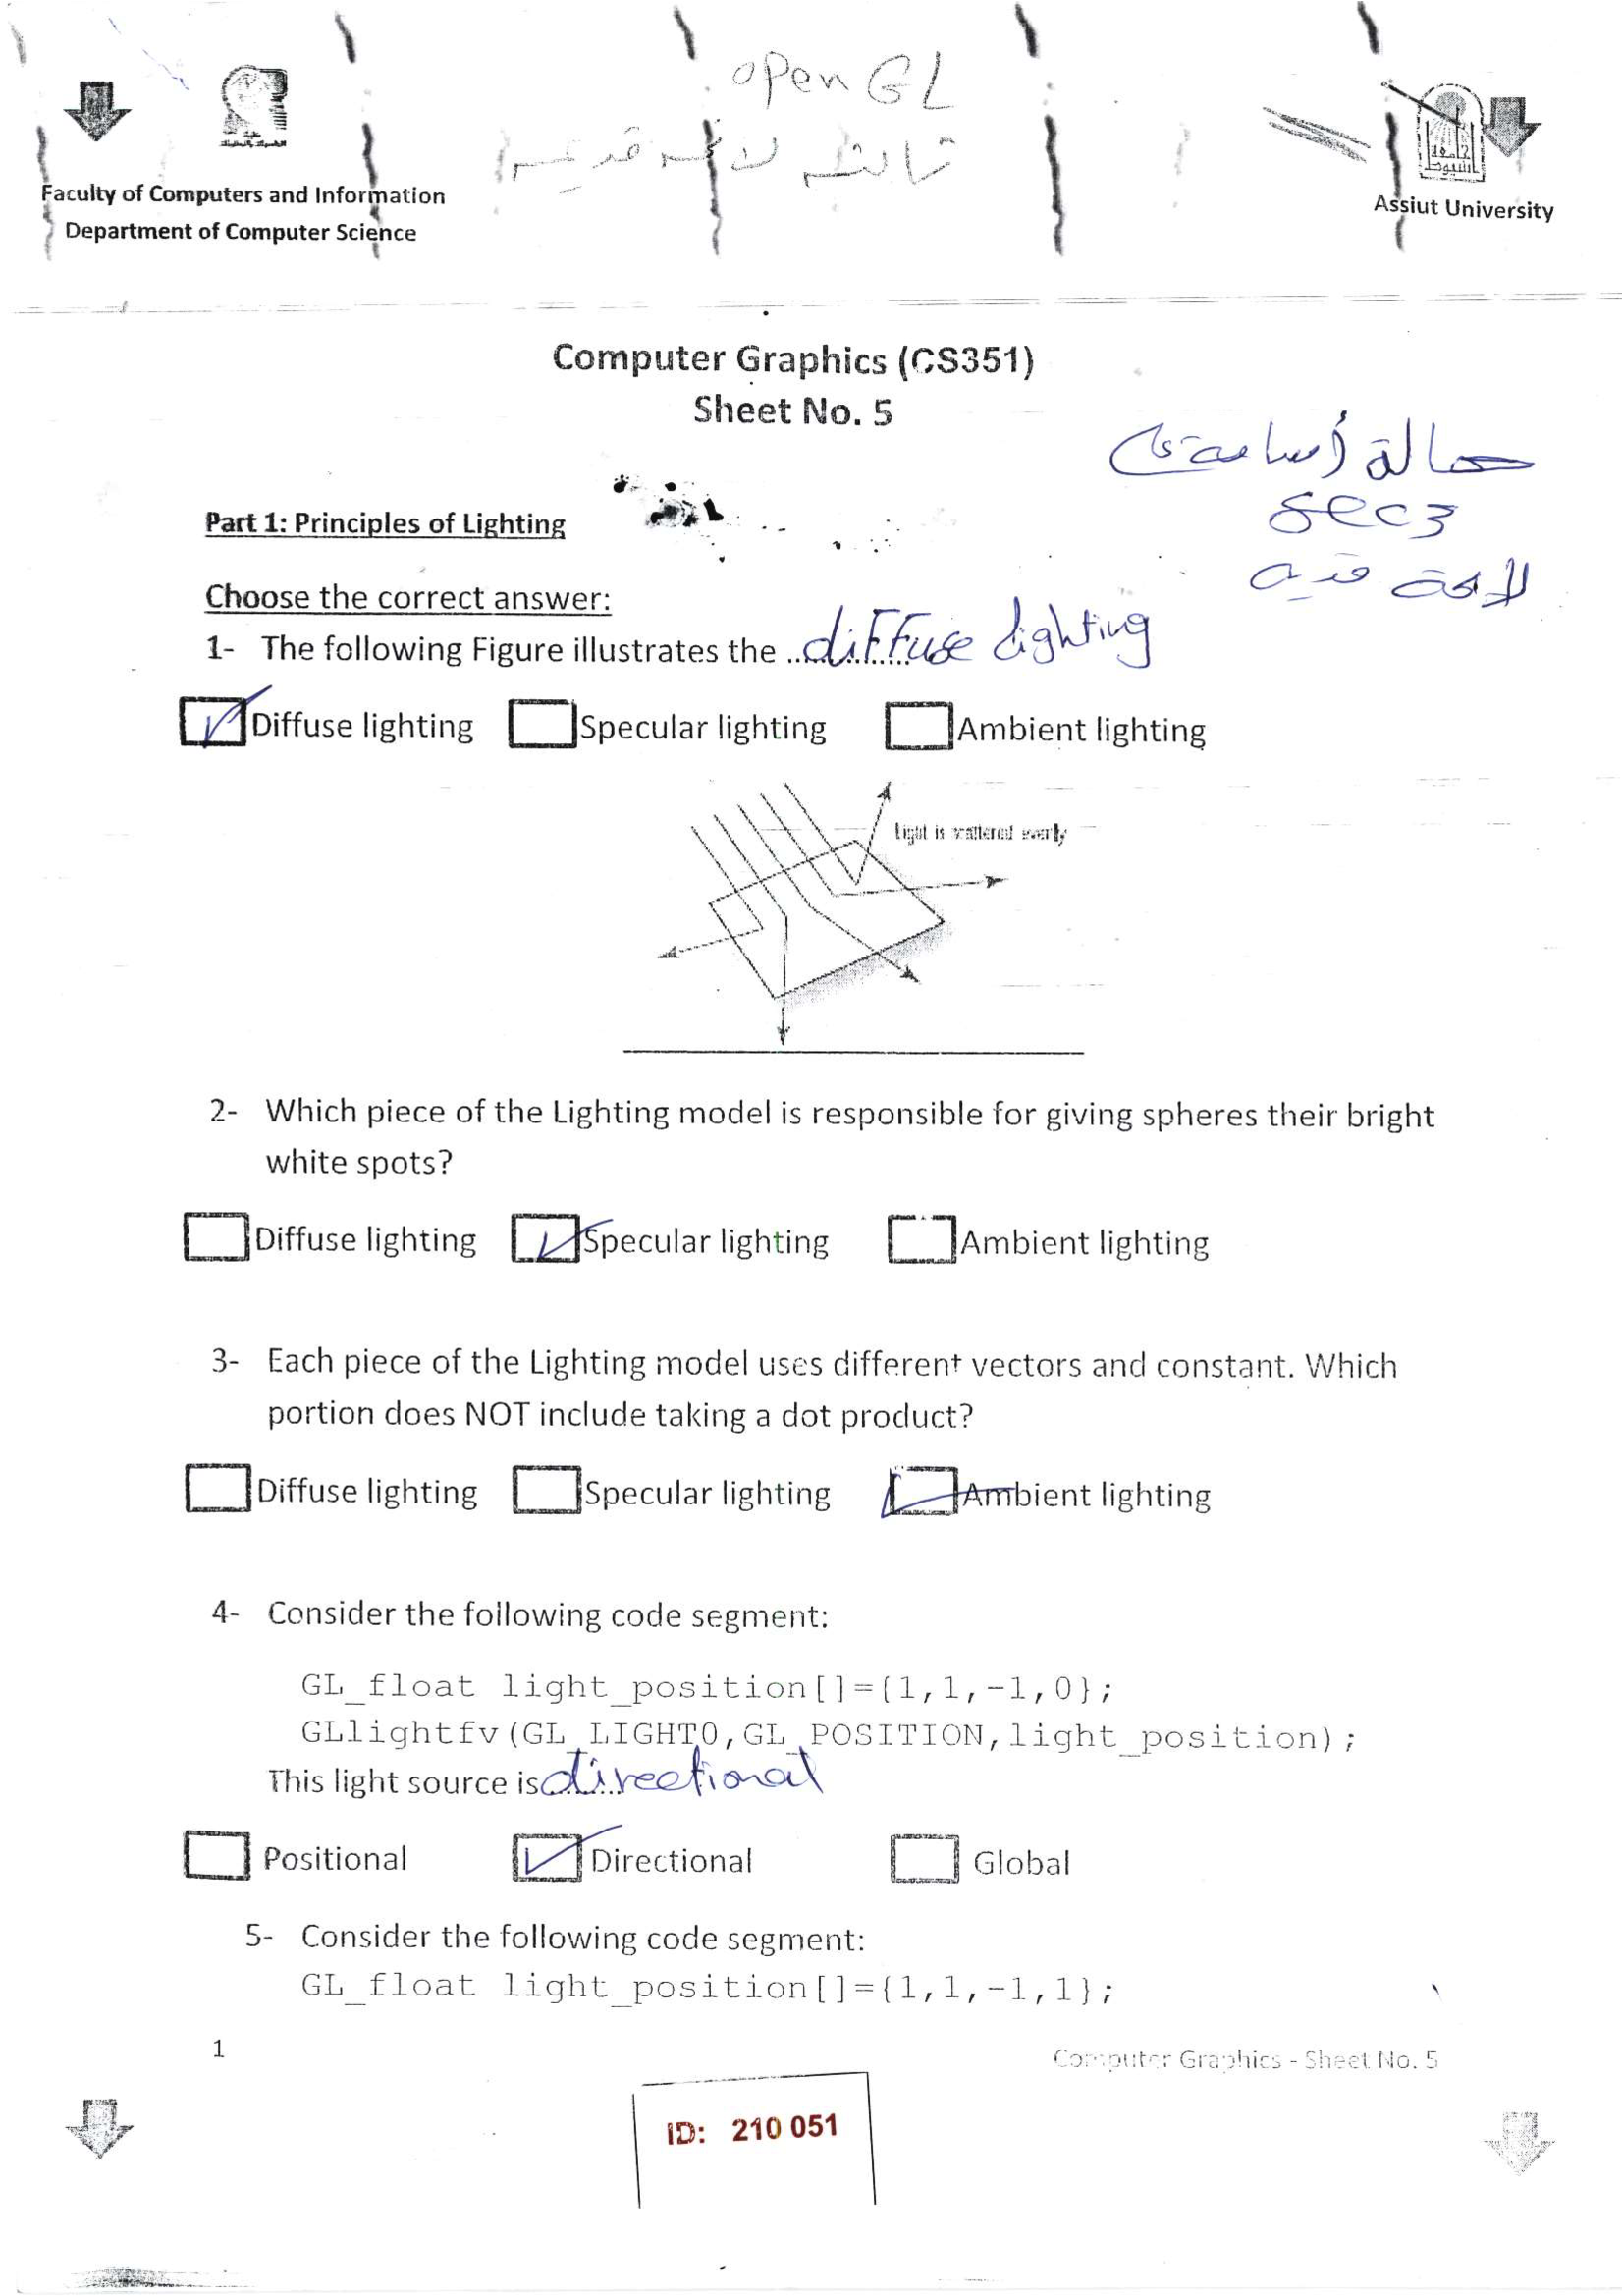 open GL
ثالثه لائحه قديمه
Faculty of Computers and Information
Department of Computer Science
Assiut University
Computer Graphics (CS351)
Sheet No. 5
sec3
Part 1: Principles of Lighting
Choose the correct answer:
1- The following Figure illustrates the ............ diffuse lighting
Diffuse lighting Specular lighting Ambient lighting
Light is scattered evenly
2- Which piece of the Lighting model is responsible for giving spheres their bright
white spots?
Diffuse lighting Specular lighting Ambient lighting
3- Each piece of the Lighting model uses different vectors and constant. Which
portion does NOT include taking a dot product?
Diffuse lighting Specular lighting Ambient lighting
4- Consider the following code segment:
GL_float light_position[]={1,1,-1,0};
GLlightfv(GL_LIGHT0,GL_POSITION,light_position);
This light source is........ directional
Positional Directional Global
5- Consider the following code segment:
GL_float light_position[]={1,1,-1,1};
1
Computer Graphics - Sheet No. 5
ID: 210 051